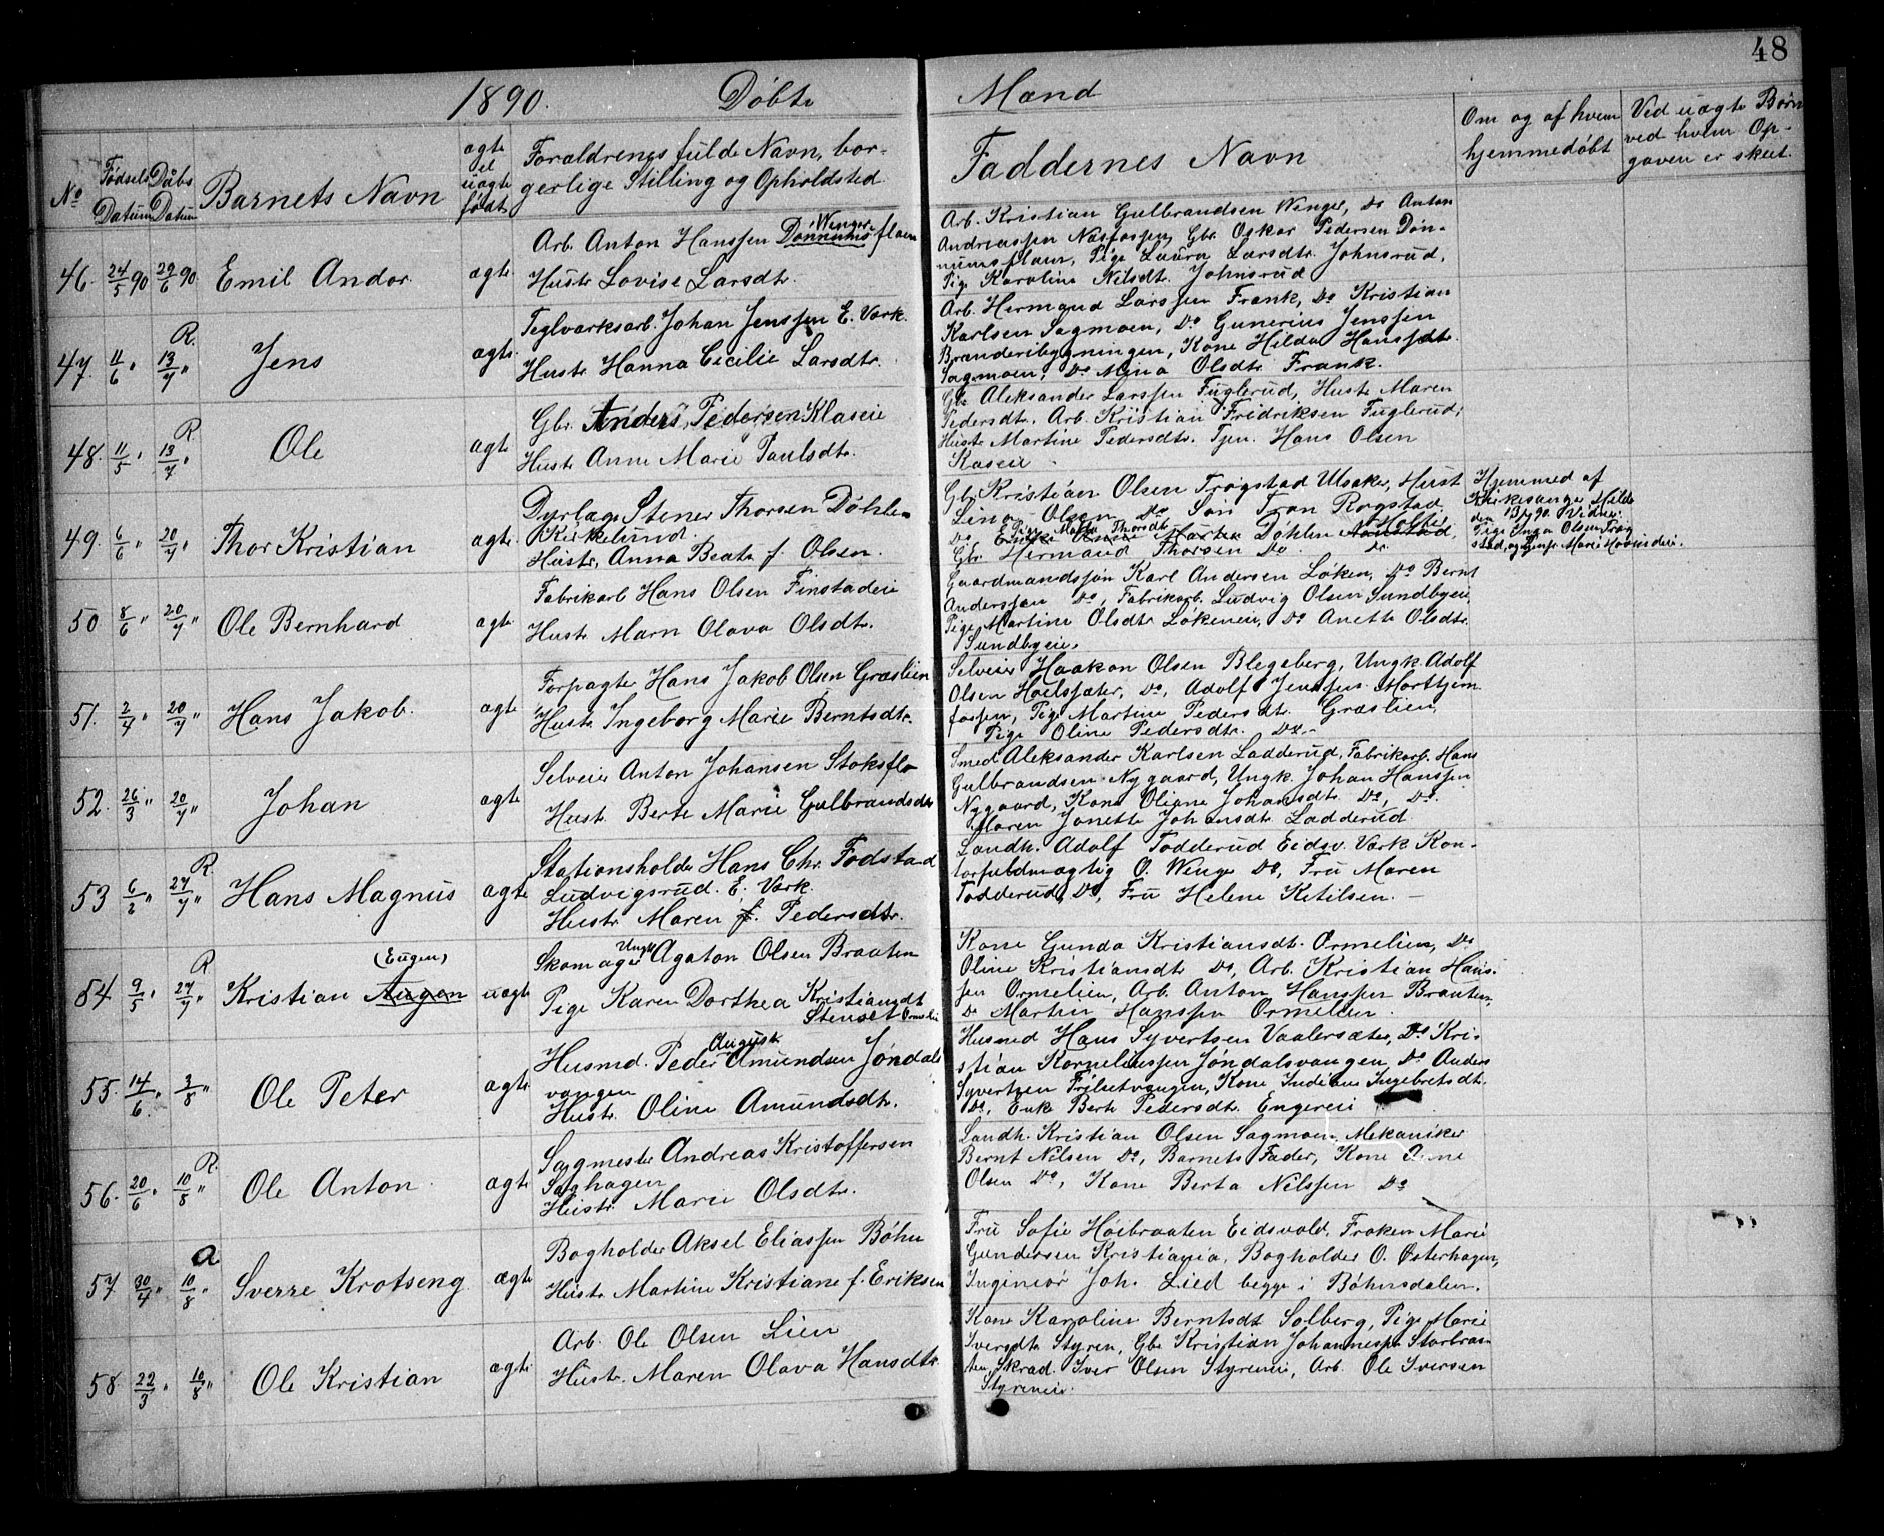 48
1890. Døbte Mænd
No
Fødsels Datum
Daabs Datum
Barnets Navn
ægte el uægte født
Forældrenes fulde Navn, bor-
gerlige Stilling og Opholdsted
Faddernes Navn
Om og af hvem
hjemmedøbt
Ved uægte Børn
ved hvem Op-
gaven er skeet.
46. 24/5 90 29/6 90 Emil Andor. ægte
Arb. Anton Hanssen Dønnumsflaen
Wenger
Hustr. Lovise Larsdtr.
Arb. Kristian Gulbrandsen Wenger, Do Anton
Andreassen Næsfossen, Gbr. Oskar Pedersen Døn-
numsflaen, Pige Laura Larsdtr. Johnsrud,
Pige Karoline Nilsdtr. Johnsrud
47. 11/6 " R. 13/7 " Jens ægte
Teglværksarb. Johan Jenssen E. Værk.
Hustr. Hanna Cicilie Larsdtr.
Arb. Hermand Larssen Frank, Do Kristian
Karlsen Sagmoen, Do Gunerius Jenssen
Brænderibygningen, Kone Hilda Hanssdtr.
Sagmoen, Do Mina Olsdtr Frank.
48. 11/5 " R. 13/7 " Ole ægte
Gbr. Anders Pedersen Klaseie
Hustr. Anne Marie Paulsdtr.
Gbr. Aleksander Larssen Fuglerud, Hustr. Maren
Pedersdtr. Arb. Kristian Fridriksen Fuglerud,
Hustr. Martine Pedersdtr. Tjen. Hans Olsen
Kaseie
49. 6/6 " 20/7 " Thor Kristian ægte
Dyrlæge Stener Thorsen Døhlen
Kirkelund.
Hustr. Anna Beate f. Olsen.
Gbr. Kristian Olsen Trøgstad Ulsaker, Hustr.
Lina Olsen Do Søn Tron Rogstad,
Do Pige Mathe Thorsdtr. Døhlen
Gbr. Hermand Thorsen Do
Hjemmed af
Kirkesanger Milde
den 13/7 90. Vidner:
Pige Inga Olsen Trøg
stad, og Marie
50 8/6 " 20/7 " Ole Bernhard ægte
Fabrikarb Hans Olsen Finstadeie
Hustr. Marn Olava Olsdtr.
Gaardmandssøn Karl Andersen Løken, Do Bernt
Anderssen Do, Fabrikarb. Ludvig Olsen Sundbyeie,
Pige Martine Olsdtr Løkenen, Do Anette Olsdtr.
Sundbyeie.
51. 2/4 " 20/7 " Hans Jakob. ægte
Forpagter Hans Jakob Olsen Græslien
Hustr. Ingeborg Marie Berntsdtr.
Selveier Haakon Olsen Blegeberg, Ungk. Adolf
Olsen Høilssæter, Do, Adolf Jenssen Morttjern
fossen, Pige Martine Pedersdtr. Græslien,
Pige Oline Pedersdtr. Do.
52. 26/3 " 20/7 " Johan ægte
Selveier Anton Johansen Stoksflo
Hustr. Berte Marie Gulbrandsdtr
Smed Aleksander Karlsen Ladderud, Fabrikarb. Hans
Gulbrandsen Nygaard, Ungk. Johan Hanssen
Nygaard, Kone Oliane Johansdtr. Do, Do.
Maren Jonette Johansdtr. Ladderud
53 6/2 " R. 27/7 " Hans Magnus ægte
Stationsholder Hans Chr. Fodstad
Ludvigsrud. E. Værk.
Hustr. Maren f. Pedersdtr.
Landh. Adolf Todderud Eidsv. Værk Kon-
torfuldmægtig O. Winge Do, Fru Maren
Todderud, Do, Fru Helene Ketilsen.
54 9/5 " R 27/7 " Kristian Augen (Eugen) uægte
Skomager Ungk. Agaton Olsen Braaten
Pige Karen Dorthea Kristiansdtr
Stenset Ormelien
Kone Gunda Kristiansdtr. Ormelien, Do
Oline Kristiansdtr Do, Arb. Kristian Hans-
sen Ormelien, Arb. Anton Hanssen Braaten,
Do Martin Hanssen Ormelien.
55. 14/6 " 3/8 " Ole Peter ægte
Husmd. Peder August Amundsen Jøndals
vangen
Hustr. Oline Amundsdtr.
Husmd Hans Syvertsen Vaalersæter, Do Kri-
stian Korneliussen Jøndalsvangen, Do Anders
Syvertsen Frilsetvangen, Kone Indiane Ingebretsdtr.
Do, Enke Berte Pedersdtr. Engereie
56. 20/6 " R. 10/8 " Ole Anton ægte
Sagmester Andreas Kristoffersen
Saghagen
Hustr. Marie Olsdtr.
Landh. Kristian Olsen Sagmoen, Mekaniker
Bernt Nilsen Do, Barnets Fader, Kone Anne
Olsen Do, Kone Berta Nilssen Do
57 30/4 " a 10/8 " Sverre Krotseng ægte
Bogholder Aksel Eliassen Bøhn
Hustr. Martine Kristiane f. Eriksen
Fru Sofie Høibraaten Eidsvold, Frøken Marie
Gundersen Kristiania, Bogholder O. Østerhagen,
Ingeniør Joh. Lied begge i Bøhnsdalen.
58 22/3 " 10/8 " Ole Kristian ægte
Arb. Ole Olsen Lien
Hustr. Maren Olava Hansdtr.
Kone Karoline Berntsdtr Solberg, Pige Marie
Iversdtr Styren, Gbr. Kristian Johannessen Storbraa-
ten, Skræd. Iver Olsen Styreneie, Arb. Ole Iversen
Styreneie.